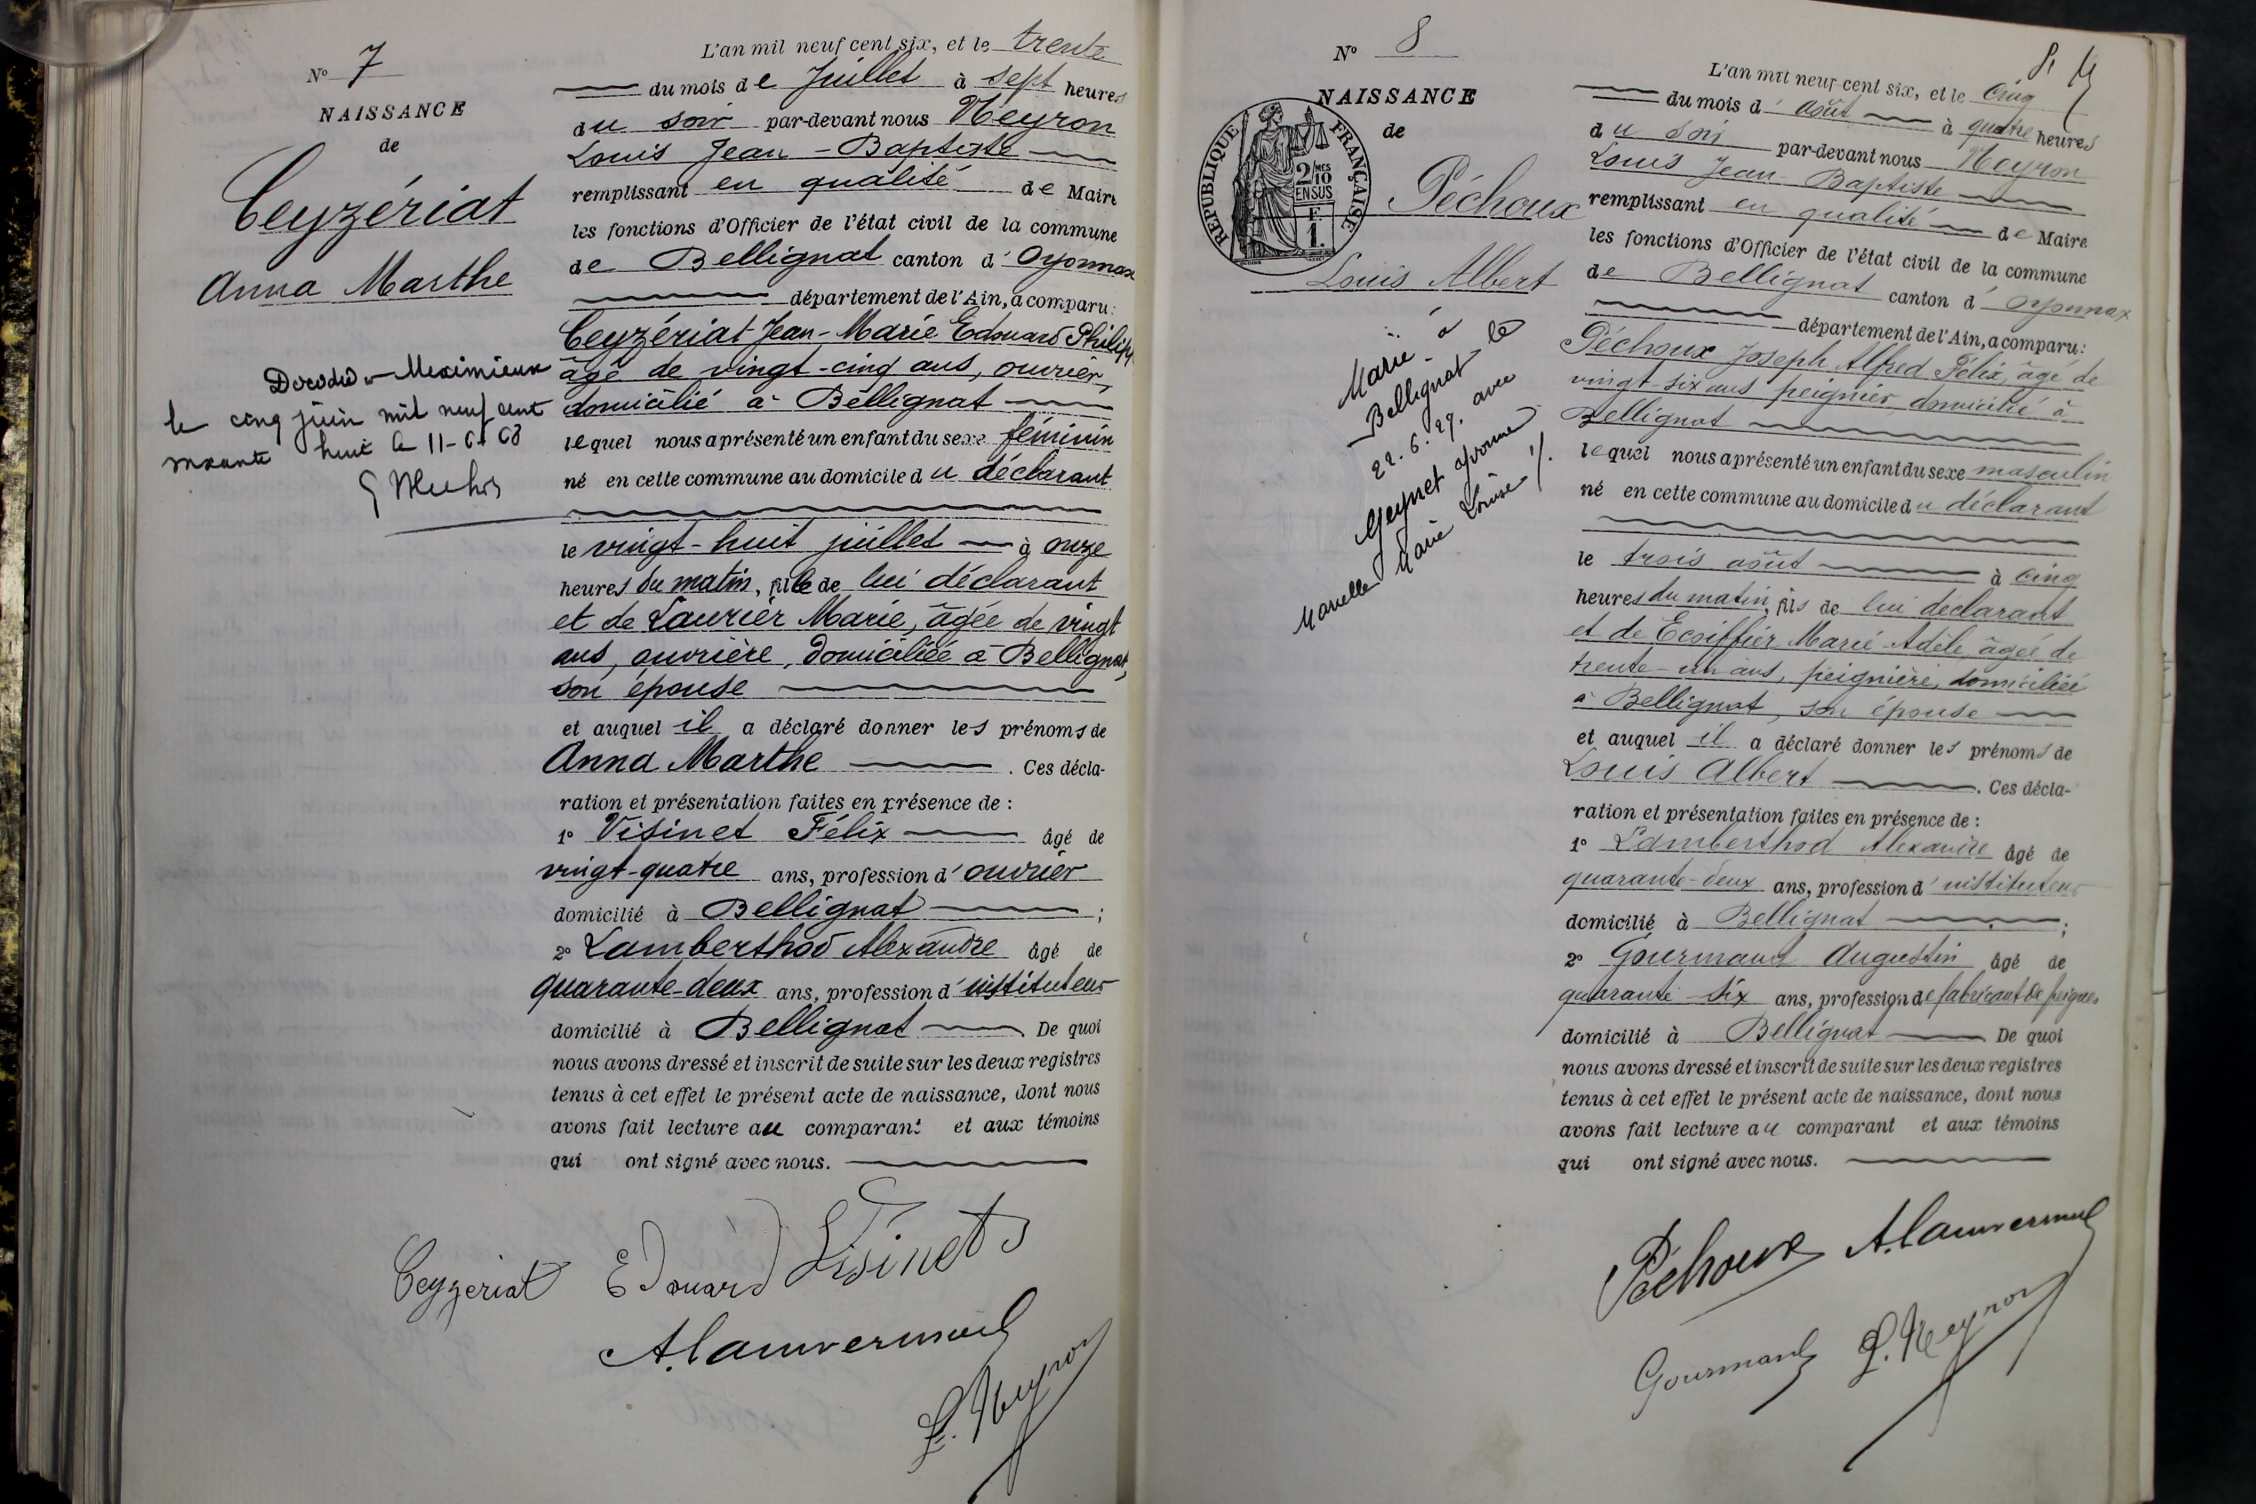 N° 7
NAISSANCE
de
Ceyzériat
Anna Marthe
Décédée à Meximieux
le cinq juin mil neuf cent
soixante huit le 11-6-68
L'an mil neuf cent six, et le trente
du mois de Juillet à sept heures
du soir par-devant nous Neyron
Louis Jean-Baptiste
remplissant en qualité de Maire
les fonctions d'Officier de l'état civil de la commune
de Bellignat canton d'Oyonnax
département de l'Ain, a comparu :
Ceyzériat Jean-Marie Edouard Philippe
âgé de vingt-cinq ans, ouvrier,
domicilié à Bellignat
lequel nous a présenté un enfant du sexe féminin
né en cette commune au domicile du déclarant
le vingt-huit juillet à onze
heures du matin, fille de lui déclarant
et de Laurier Marie, âgée de vingt
ans, ouvrière, domiciliée à Bellignat,
son épouse
et auquel il a déclaré donner les prénoms de
Anna Marthe . Ces décla-
ration et présentation faites en présence de :
1° Visinet Félix âgé de
vingt-quatre ans, profession d'ouvrier
domicilié à Bellignat ;
2° Lamberthod Alexandre âgé de
quarante-deux ans, profession d'instituteur
domicilié à Bellignat De quoi
nous avons dressé et inscrit de suite sur les deux registres
tenus à cet effet le présent acte de naissance, dont nous
avons fait lecture au comparant et aux témoins
qui ont signé avec nous.
Ceyzeriat Edouard Visinet
L. Neyron
N° 8
NAISSANCE
de
RÉPUBLIQUE FRANÇAISE
2/10 MES
EN SUS
F.
1.
Péchoux
Louis Albert
Marié à
Bellignat le
22.6.29. avec
Geynet Yvonne
Marcelle Marie Louise ./.
L'an mil neuf cent six, et le cinq
du mois d'août à quatre heures
du soir par-devant nous Neyron
Louis Jean-Baptiste
remplissant en qualité de Maire
les fonctions d'Officier de l'état civil de la commune
de Bellignat canton d'Oyonnax
département de l'Ain, a comparu :
Péchoux Joseph Alfred Félix, âgé de
vingt-six ans peignier domicilié à
Bellignat
lequel nous a présenté un enfant du sexe masculin
né en cette commune au domicile du déclarant
le trois août à cinq
heures du matin, fils de lui déclarant
et de Ecoiffier Marie-Adèle, âgée de
trente-un ans, peignière, domiciliée
à Bellignat, son épouse
et auquel il a déclaré donner les prénoms de
Louis Albert . Ces décla-
ration et présentation faites en présence de :
1° Lamberthod Alexandre âgé de
quarante-deux ans, profession d'instituteur
domicilié à Bellignat ;
2° Gourmand Augustin âgé de
quarante-six ans, profession de fabricant de peignes
domicilié à Bellignat De quoi
nous avons dressé et inscrit de suite sur les deux registres
tenus à cet effet le présent acte de naissance, dont nous
avons fait lecture au comparant et aux témoins
qui ont signé avec nous.
Péchoux
Gourmand L. Neyron